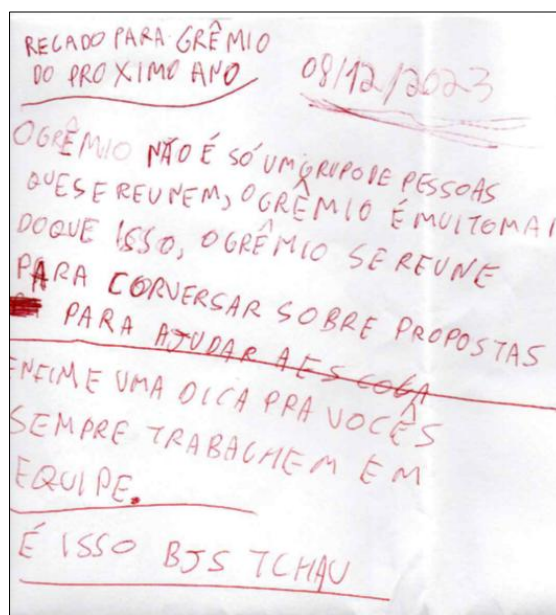 RECADO PARA GRÊMIO
DO PROXIMO ANO
08/12/2023
O GRÊMIO NÃO É SÓ UM GRUPO DE PESSOAS
QUE SE REUNEM, O GRÊMIO É MUITO MAI
DO QUE ISSO, O GRÊMIO SE REUNE
PARA CORVERSAR SOBRE PROPOSTAS
PARA AJUDAR A ESCOLA
ENFIM E UMA DICA PRA VOCÊS
SEMPRE TRABALHEM EM
EQUIPE.
É ISSO BJS TCHAU